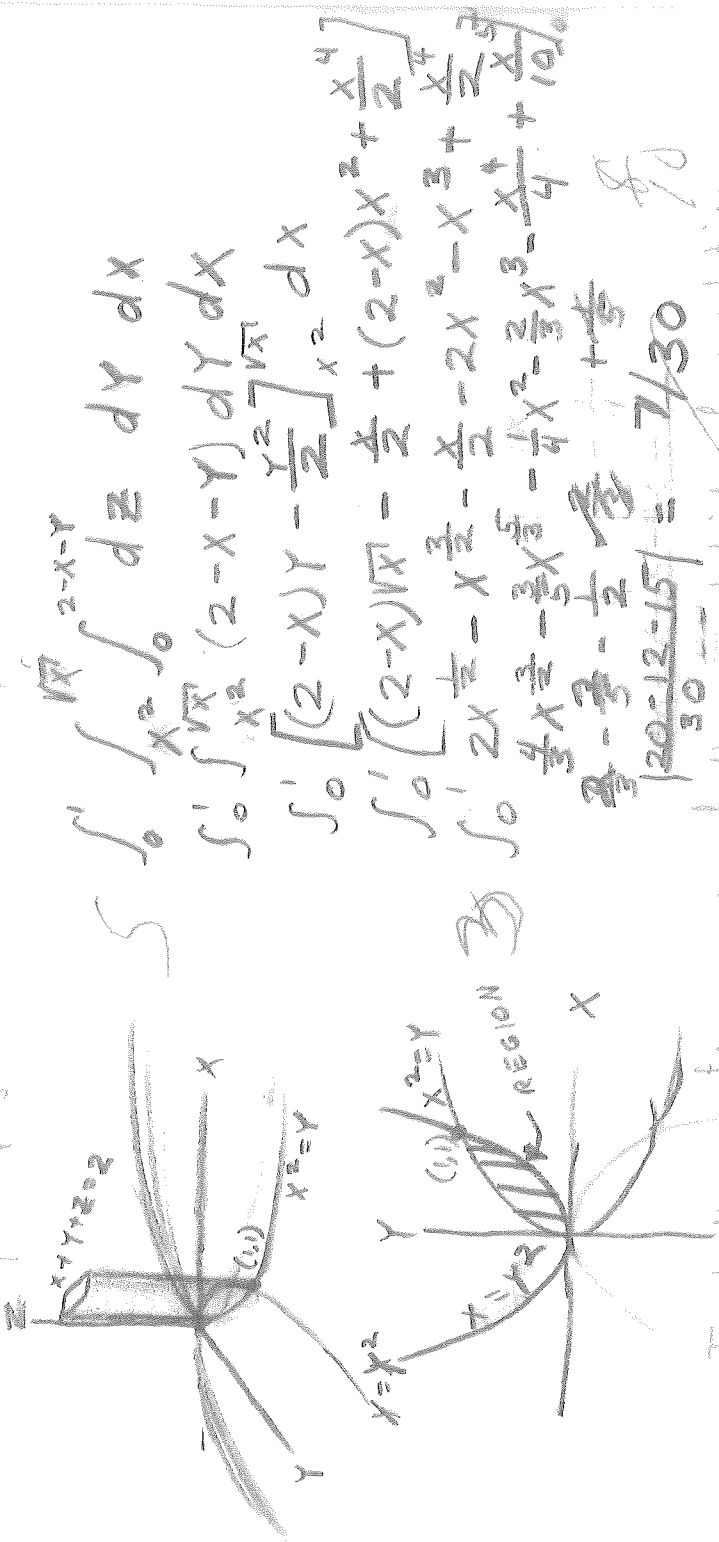 Z
x+y+z=2
X
(1,1)
x²=y
y
x=y²
Y
(1,1) x²=y
REGION
x=y²
X
5
∫₀¹ ∫_{x²}^{√x} ∫₀^{2-x-y} dz dy dx
∫₀¹ ∫_{x²}^{√x} (2-x-y) dy dx
∫₀¹ [(2-x)y - y²/2]_{x²}^{√x} dx
∫₀¹ [(2-x)√x - x/2 + (2-x)x² + x⁴/2]
∫₀¹ 2x^{1/2} - x^{3/2} - x/2 - 2x² - x³ + x⁴/2
4/3 x^{3/2} - 3/5 x^{5/3} - 1/4 x² - 2/3 x³ - x⁴/4 + x⁵/10]₀
- 1/2
|20-12-15|/30 = 7/30